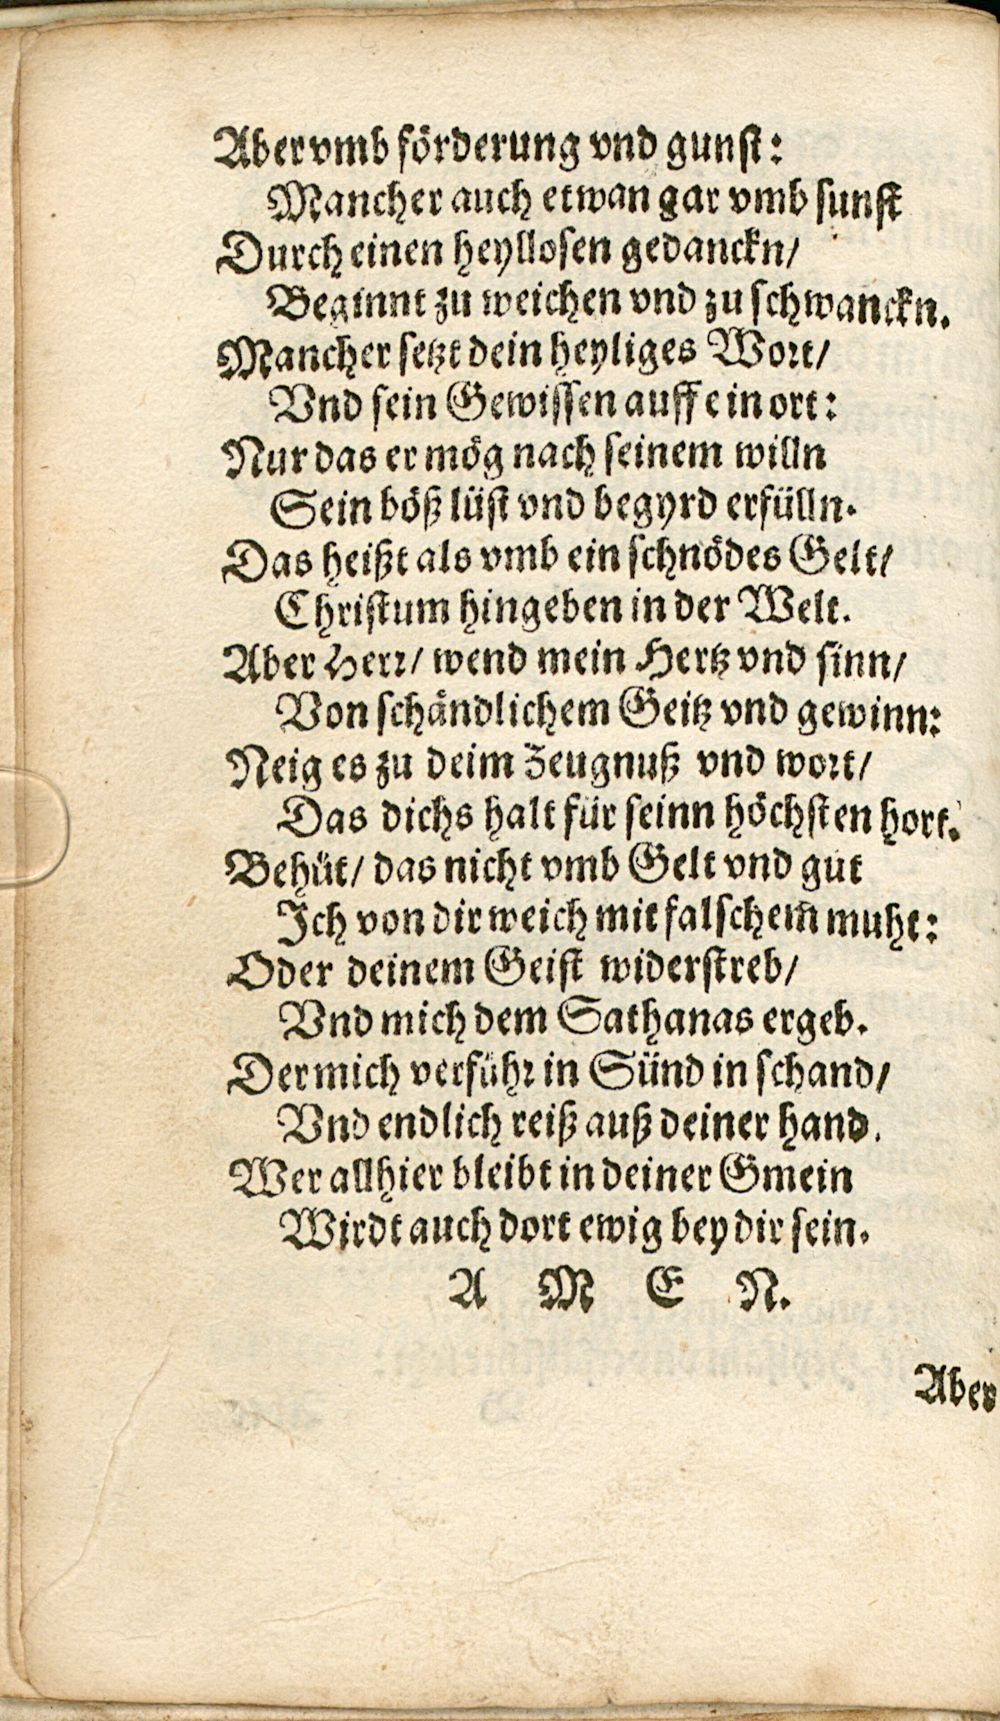 Aber vmb förderung vnd gunst:
Mancher auch etwan gar vmb sunst
Durch einen heyllosen gedanckn/
Beginnt zu weichen vnd zu schwanckn.
Mancher setzt dein heyliges Wort/
Vnd sein Gewissen auff ein ort:
Nur das er mög nach seinem willn
Sein böß lüst vnd begyrd erfülln.
Das heißt als vmb ein schnödes Gelt/
Christum hingeben in der Welt.
Aber Herr/ wend mein Hertz vnd sinn/
Von schändlichem Geitz vnd gewinn:
Neig es zu deim Zeugnuß vnd wort/
Das dichs halt für seinn höchsten hort.
Behüt/ das nicht vmb Gelt vnd gut
Ich von dir weich mit falschem̃ muht:
Oder deinem Geist widerstreb/
Vnd mich dem Sathanas ergeb.
Der mich verführ in Sünd in schand/
Vnd endlich reiß auß deiner hand.
Wer allhier bleibt in deiner Gmein
Wirdt auch dort ewig bey dir sein.
A M E N.
Aber